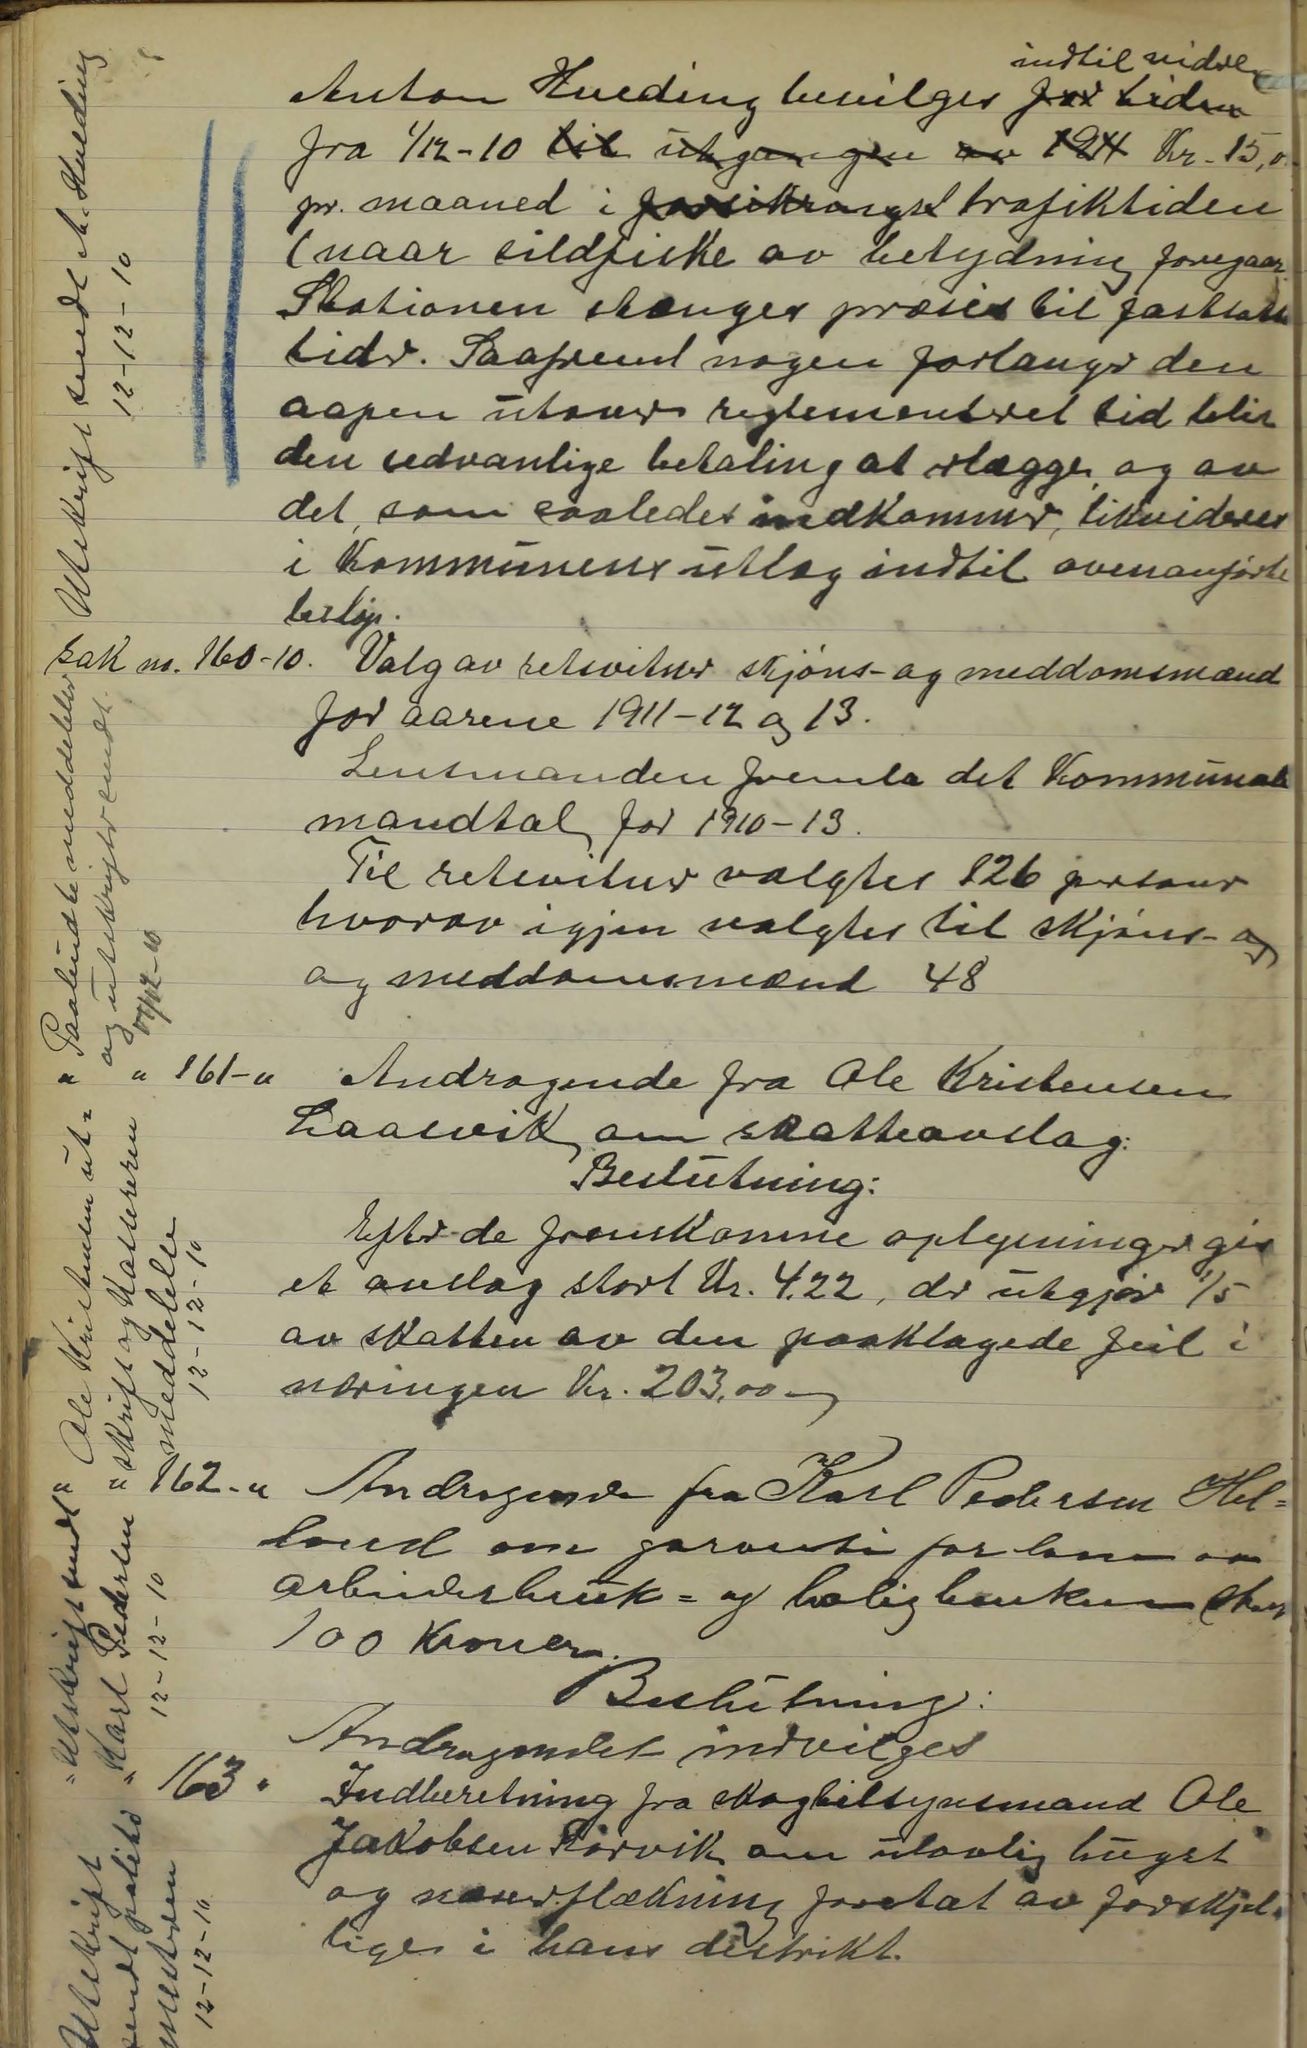 indtil videre
Anton Hveding bevilges for tiden
fra 1/12-10 til utgangen av 1911 Kr. 15,0
pr. maaned i trafiktiden
(naar sildfiske av betydning foregaar.
Stationen stænges præsis til fastsatte
tider. Saafremt nogen forlanger den
aapen utover reglementeret tid blir
den sedvanlige betaling at erlægge, og av
det, som saaledes indkommer, likvideres
i Kommunens utlæg indtil ovenanførte
beløp.
Utskrift sendt A. Hveding
12-12-10
Sak nr. 160-10. Valg av retsvitner skjöns- og meddomsmænd
for aarene 1911-12 og 13.
Lensmanden fremla det Kommunale
mandtal for 1910-13.
Til retsvitner valgtes 126 personer
hvorav igjen valgtes til skjöns- og
og meddomsmænd 48
Paabudte meddelelser
og utskrifter sendt
" " 161-" Andragende fra Ole Kristensen
Laasvik om skatteavslag.
Beslutning:
Efter de fremkomne oplysninger gis
et avslag stort Kr. 4.22, der utgjør 1/5
av skatten av den paaklagede feil i
næringen Kr. 203,00
Ole Kristensen ut-
skrift og Kasereren
meddelelse
12-12-10
" " 162-" Andragende fra Karl Pedersen Hel-
land om garanti for laan av
arbeiderbruk- og boligbanken stort
100 Kroner.
Beslutning:
Andragendet indvilges
"Utskrift sendt
"Karl Pedersen
12-12-10
163 " Indberetning fra skogtilsynsmand Ole
Jakobsen Rörvik om ulovlig hugst
og næverflækning foretat av forskjel-
lige i hans destrikt.
Utskrift
sendt politi
mesteren
12-12-10